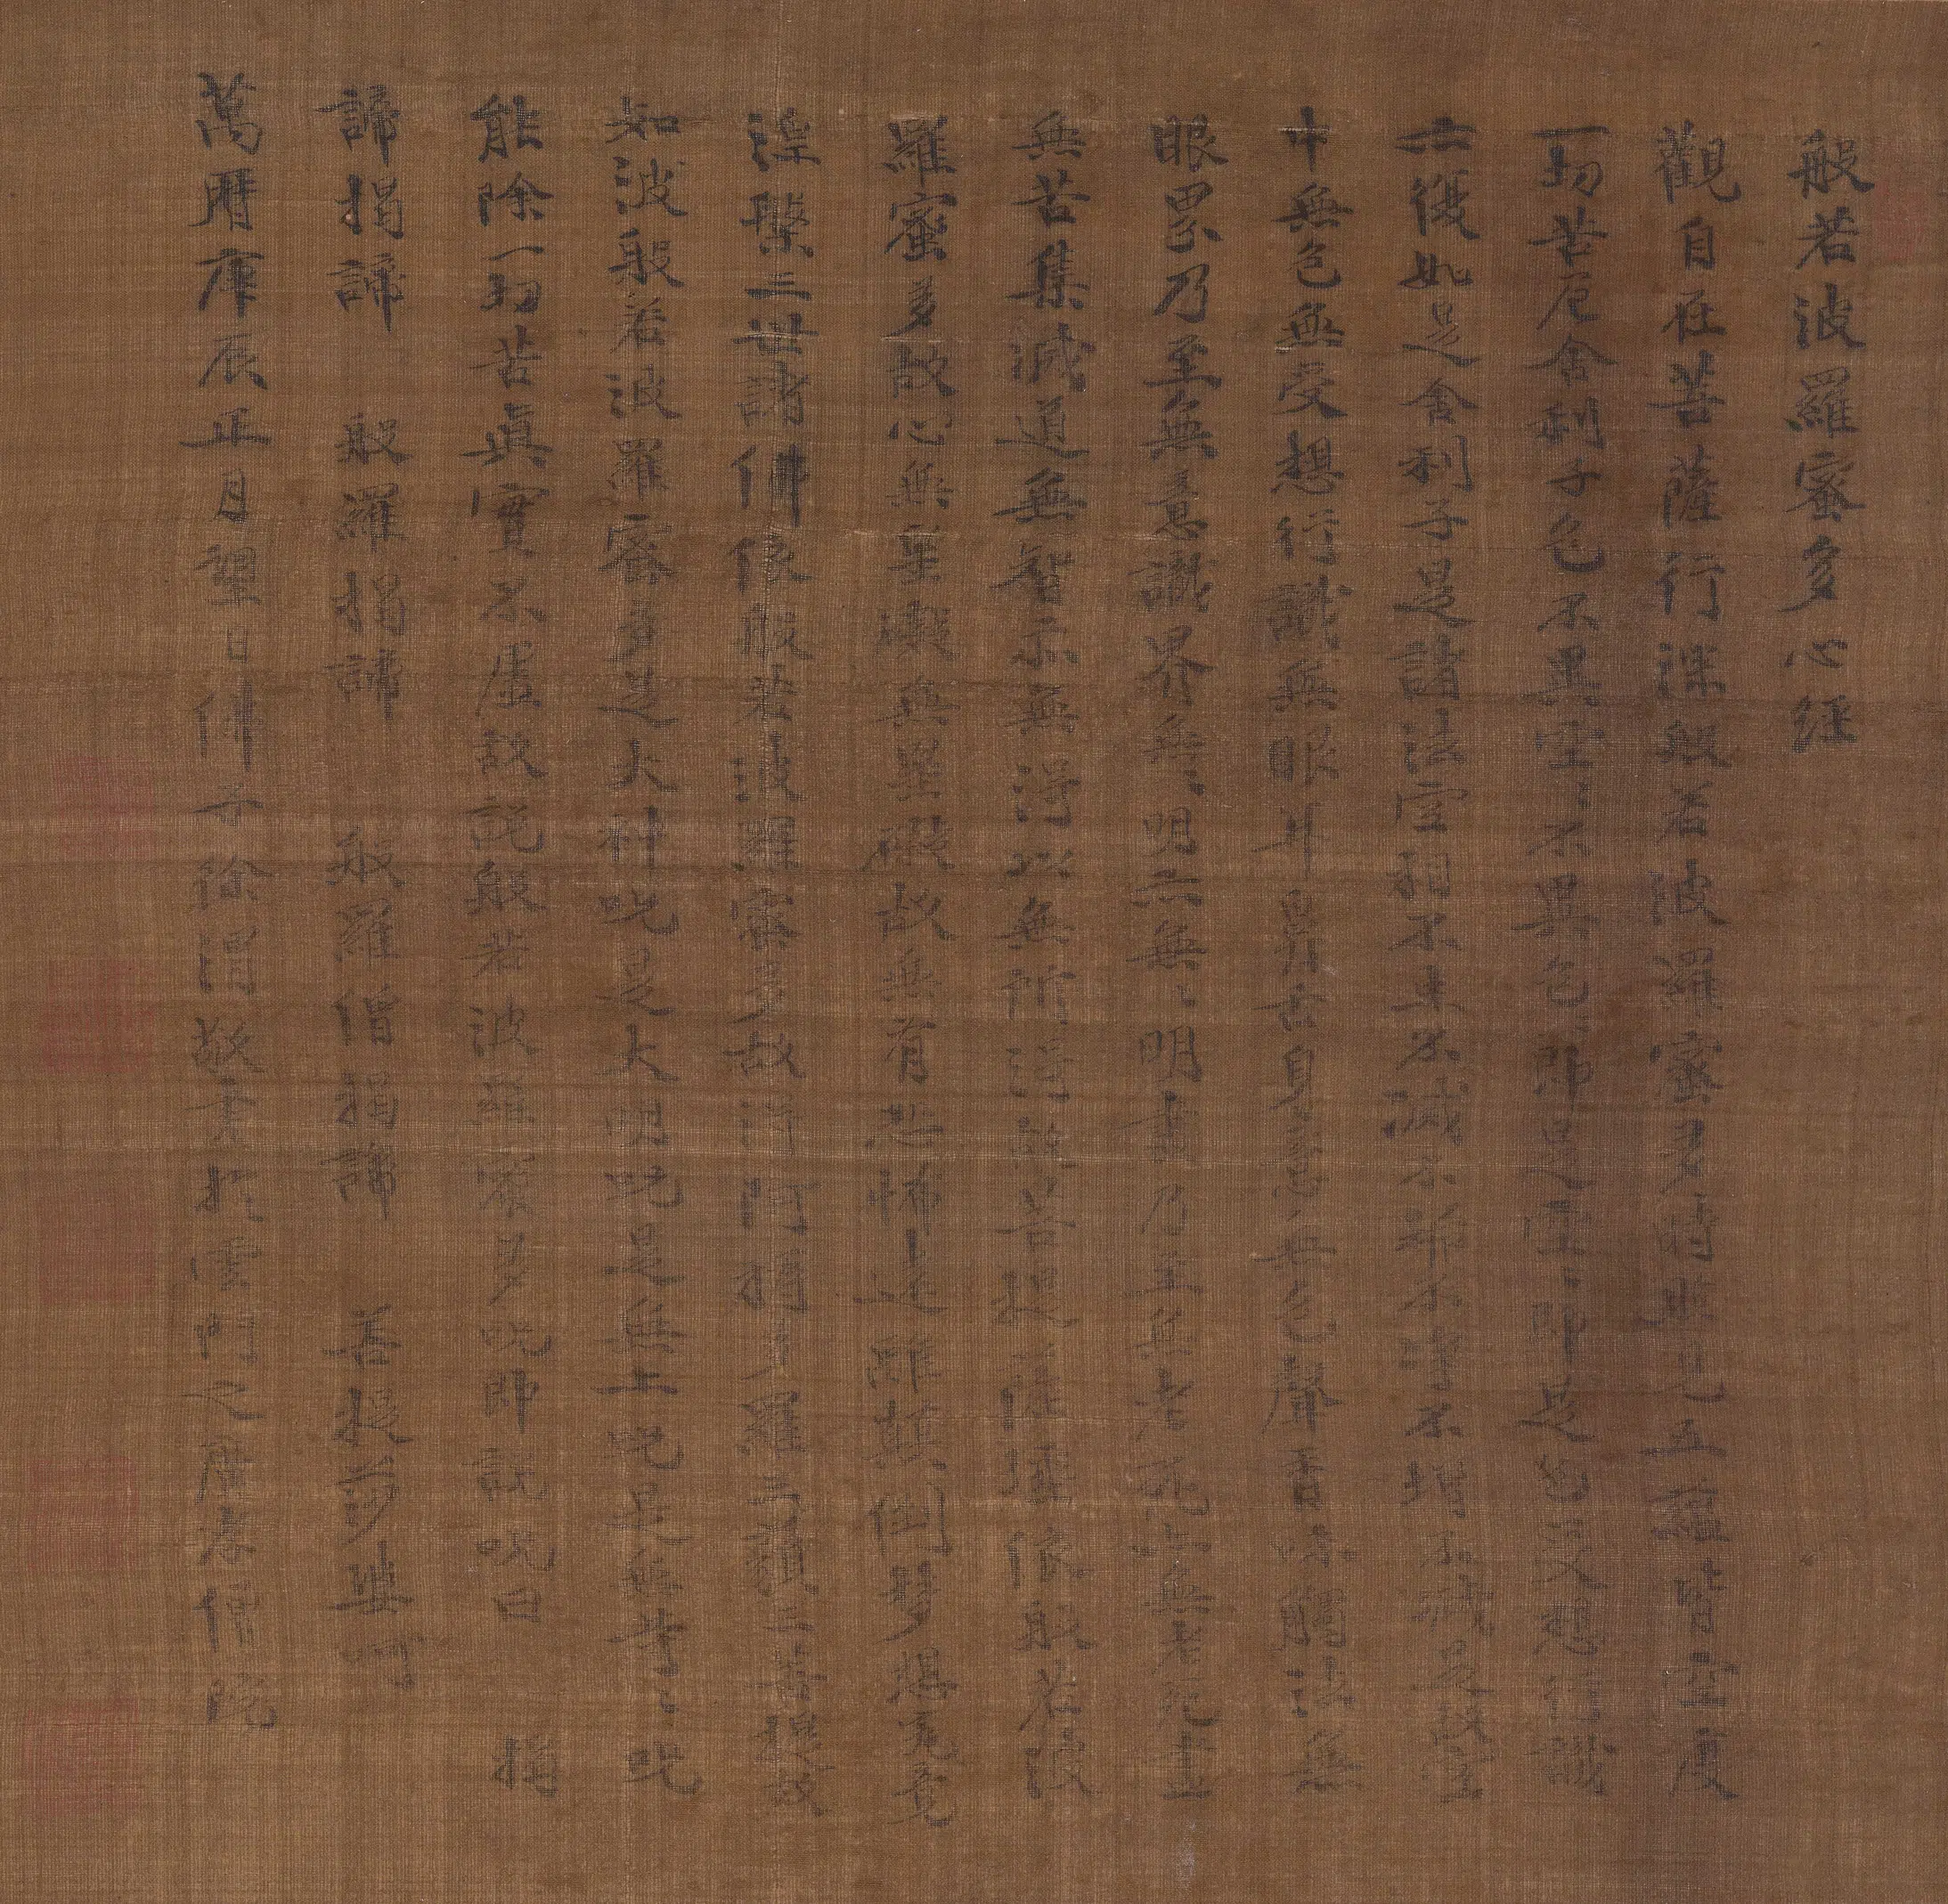 般若波羅蜜多心經
觀自在菩薩行深般若波羅蜜多時照見五蘊皆空度
一切苦厄舍利子色不異空〻不異色〻即是空〻即是色受想行識
亦復如是舍利子是諸法空相不生不滅不垢不淨不增不減是故空
中無色無受想行識無眼耳鼻舌身意無色聲香味觸法無
眼界乃至無意識界無〻明亦無〻明盡乃至無老死亦無老死盡
無苦集滅道無智亦無得以無所得故菩提薩埵依般若波
羅蜜多故心無罣礙無罣礙故無有恐怖遠離顛倒夢想究竟
涅槃三世諸佛依般若波羅蜜多故得阿耨多羅三藐三菩提故
知波般若波羅蜜多是大神呪是大明呪是無上呪是無等〻呪
能除一切苦真實不虛故說般若波羅蜜多呪即說呪曰 揭
諦揭諦 般羅揭諦 般羅僧揭諦 菩提莎婆呵
萬曆庚辰正月望日佛子徐渭敬書於雲門之廣孝僧院